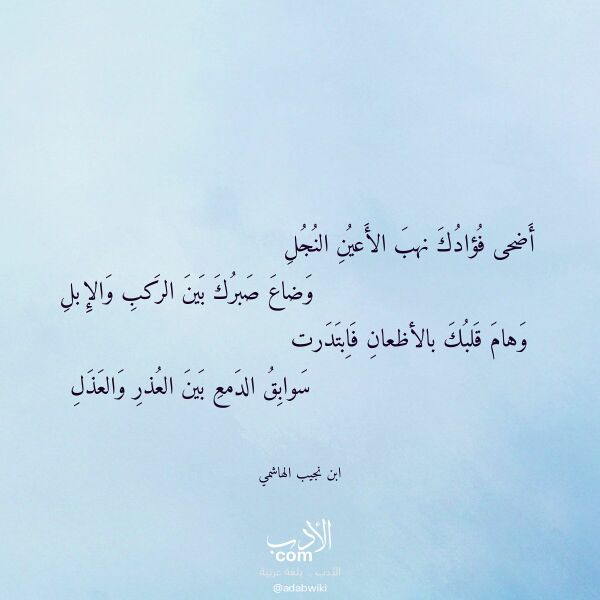 أَضحى فُؤادُكَ نهبَ الأَعيُنِ النُجُلِ
وَضاعَ صَبرُكَ بَينَ الرَكبِ وَالإِبلِ
وَهامَ قَلبُكَ بالأظعانِ فَاِبتَدَرت
سَوابِقُ الدَمعِ بَينَ العُذرِ وَالعَذَلِ
ابن نجيب الهاشمي
الأدب
com
الأدب .. بلغة عربية
@adabwiki